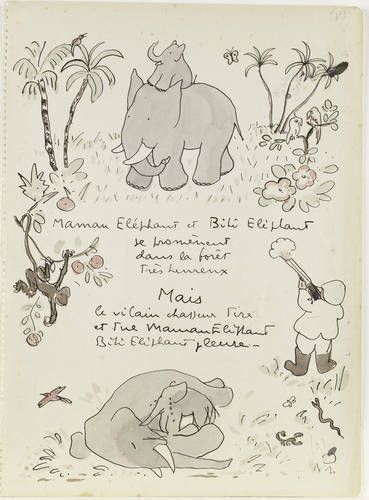 Maman Eléphant et Bébé Eléphant
se promènent
dans la forêt
très heureux
Mais
le vilain chasseur tire
et tue Maman Eléphant
Bébé Eléphant pleure –